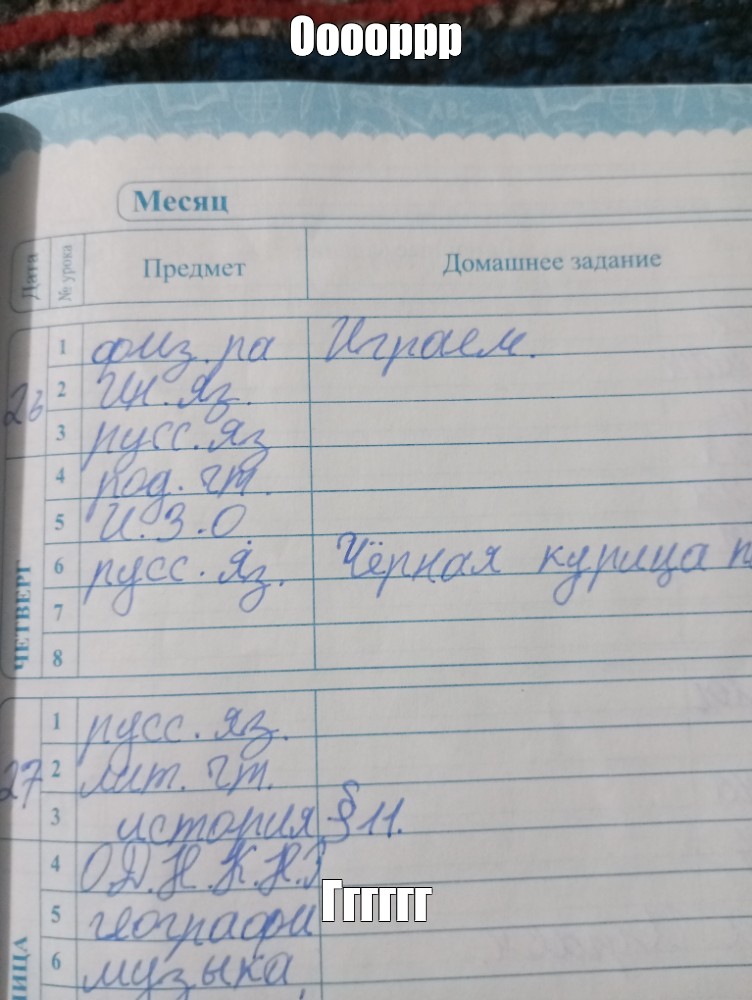 Ооооррр
Месяц
Дата № урока Предмет Домашнее задание
26 ЧЕТВЕРГ
1 физ. ра Играем.
2 Ин. яз.
3 русс. яз
4 род. чт.
5 И.З.О.
6 русс. яз. Чёрная курица
7
8
27
1 русс. яз.
2 лит. чт.
3 история §11.
4 О.Д.Н.К.Н.
Гггггг
5 географи
6 музыка